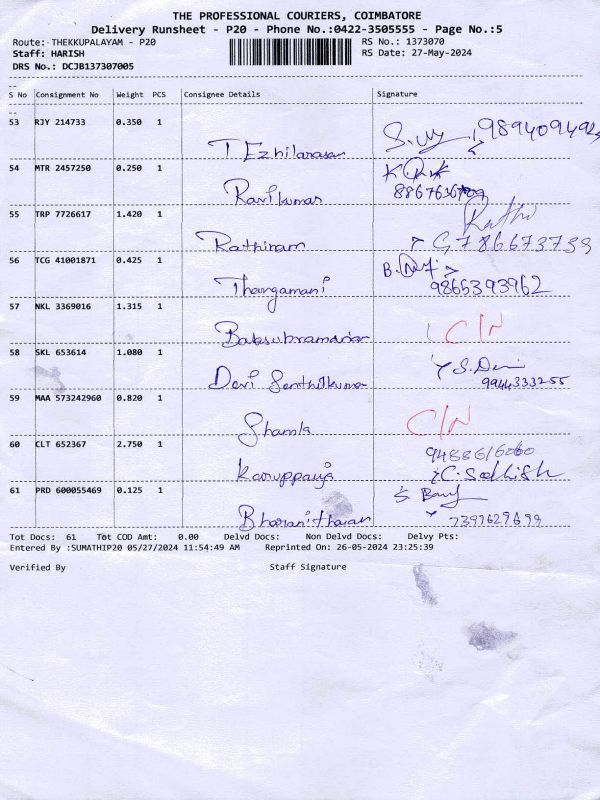 THE PROFESSIONAL COURIERS, COIMBATORE
Delivery Runsheet - P20 - Phone No.:0422-3505555 - Page No.:5
Route: THEKKUPALAYAM - P20 RS No.: 1373070
Staff: HARISH RS Date: 27-May-2024
DRS No.: DCJB137307005
S No Consignment No Weight PCS Consignee Details Signature
53 RJY 214733 0.350 1
T Ezhilarasan
54 MTR 2457250 0.250 1
Ravikumar
55 TRP 7726617 1.420 1 Rathi
Rathinam
56 TCG 41001871 0.425 1
Thangamani 9865393962
57 NKL 3369016 1.315 1
Balasubramanian C/N
58 SKL 653614 1.080 1
Devi Senthilkumar 9944333255
59 MAA 573242960 0.820 1
Shamla C/N
60 CLT 652367 2.750 1 9488616060
Karuppaiya C. Sathish
61 PRD 600055469 0.125 1
Bharanitharan 7397629699
Tot Docs: 61 Tot COD Amt: 0.00 Delvd Docs: Non Delvd Docs: Delvy Pts:
Entered By :SUMATHIP20 05/27/2024 11:54:49 AM Reprinted On: 26-05-2024 23:25:39
Verified By Staff Signature